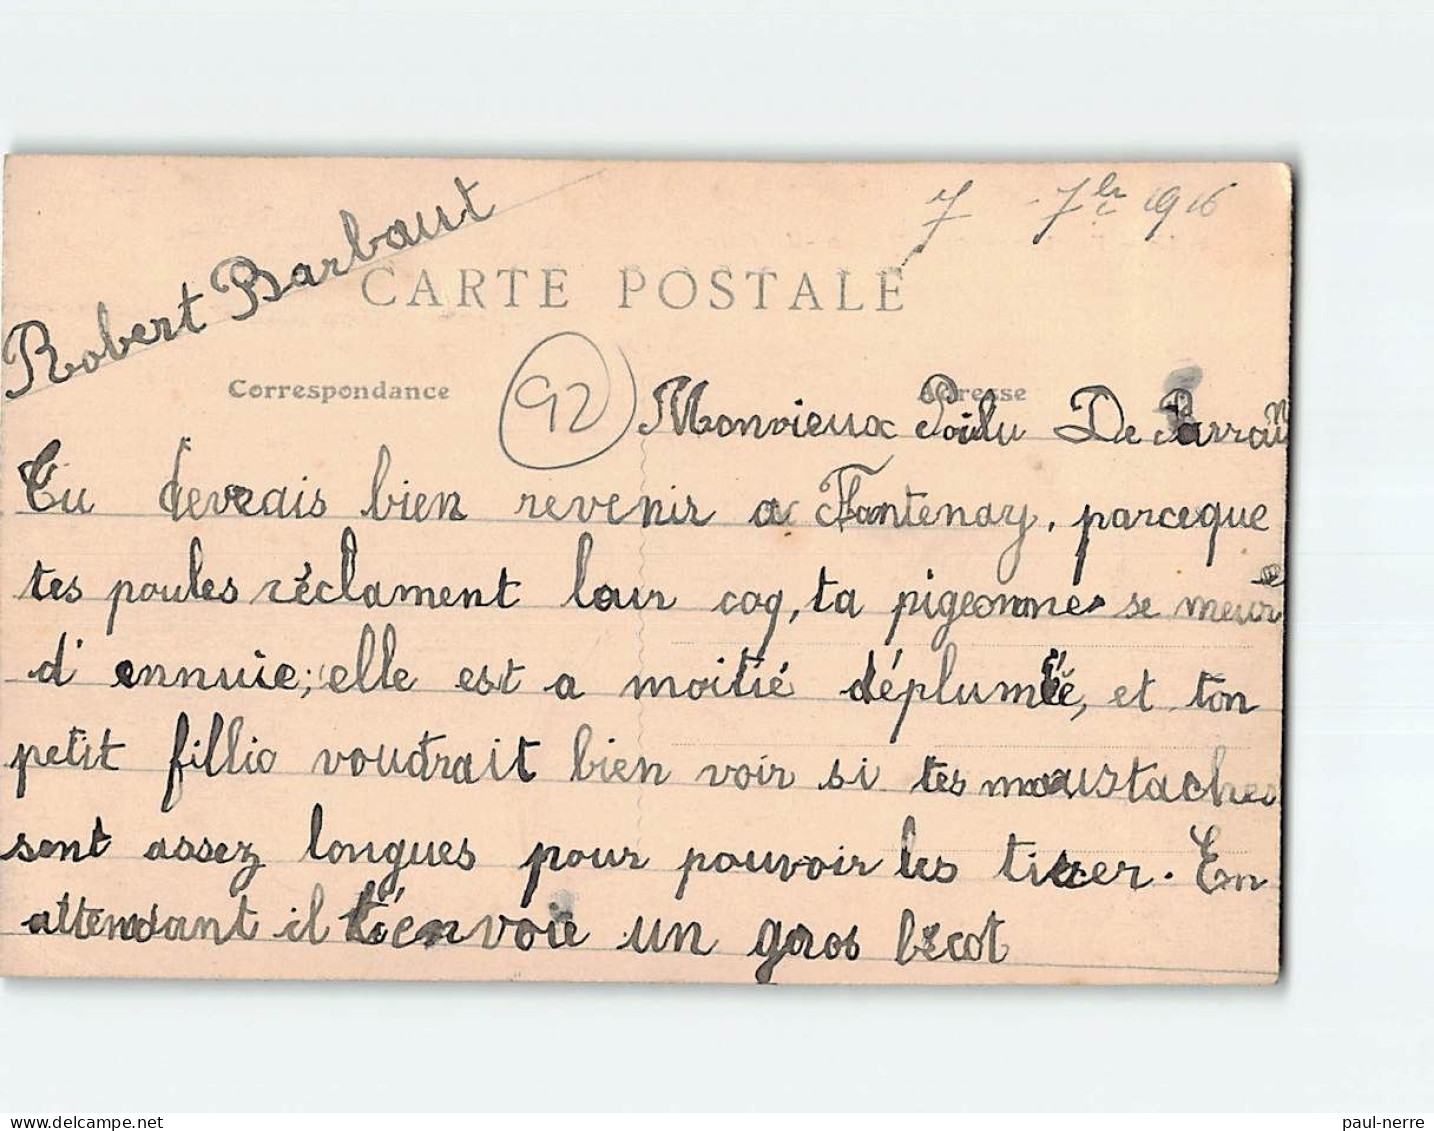 7 - 7bre 1916
Robert Barbaut
CARTE POSTALE
Correspondance
Adresse
92
Monvieux Poilu De Parrain
Tu devrais bien revenir a Fantenay, parceque
tes poules réclament leur coq, ta pigeonne se meur
d'ennuie; elle est a moitié déplumée, et ton
petit fillio voudrait bien voir si tes moustaches
sont assez longues pour pouvoir les tirer. En
attendant il t'envoie un gros bécot
paul-nerre